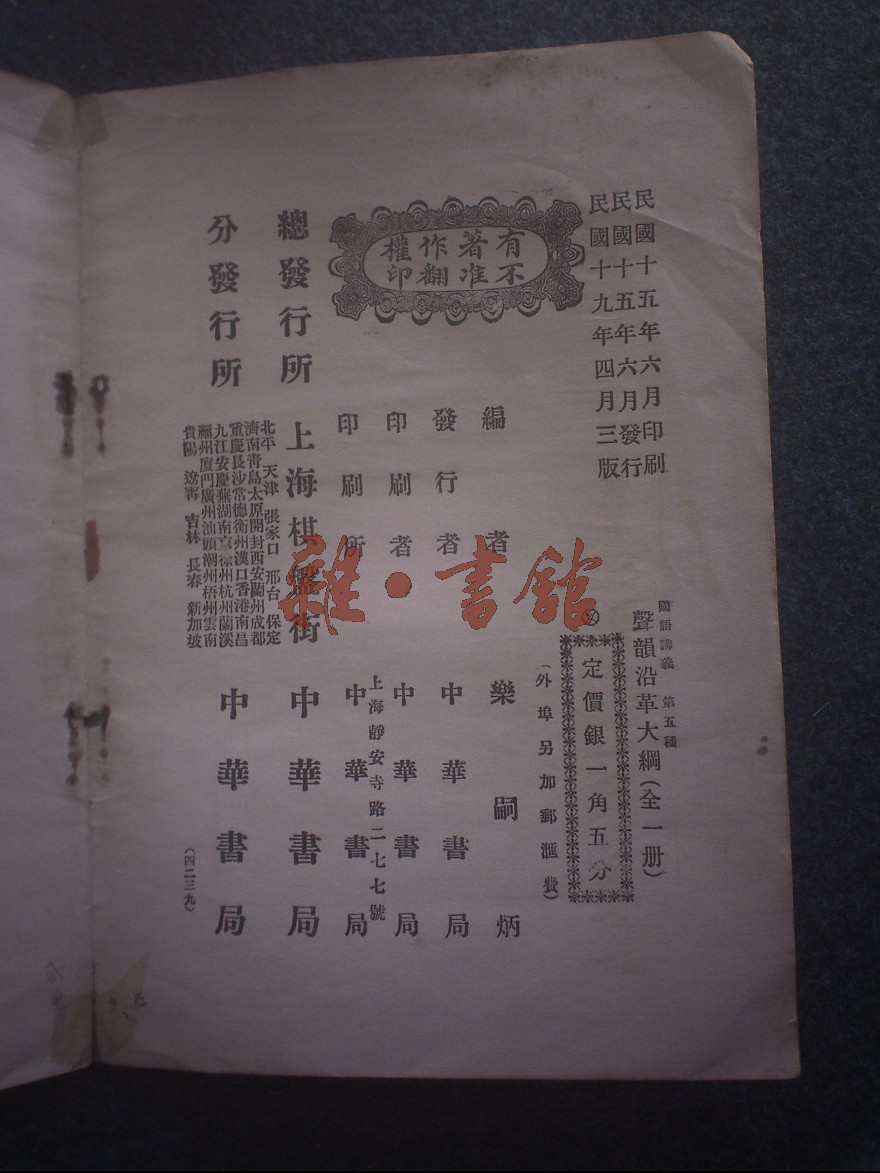 民國十五年六月印刷
民國十五年六月發行
民國十九年四月三版
國語講義 第五種
聲韻沿革大綱(全一册)
定價銀一角五分
(外埠另加郵滙費)
有著作權
不准翻印
編者 樂嗣炳
發行者 中華書局
印刷者 中華書局
上海靜安寺路二七七號
印刷所 中華書局
總發行所 上海棋盤街 中華書局
分發行所 中華書局
北平 天津 張家口 邢台 保定
濟南青島太原開封西安蘭州成都
重慶長沙常德衡州漢口香港南昌
九江安慶蕪湖南京徐州杭州蘭溪
福州廈門廣州汕頭潮州梧州雲南
貴陽 遼寧 吉林 長春 新加坡
(四二三九)
雜·書館